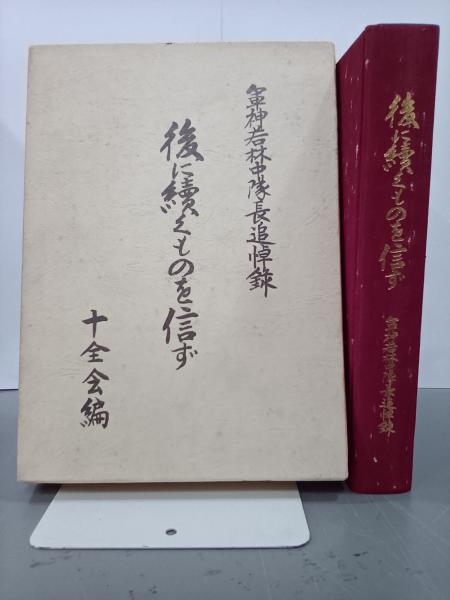 軍神若林中隊長追悼録
後に續くものを信ず
十全会編
後に續くものを信ず
軍神若林中隊長追悼録